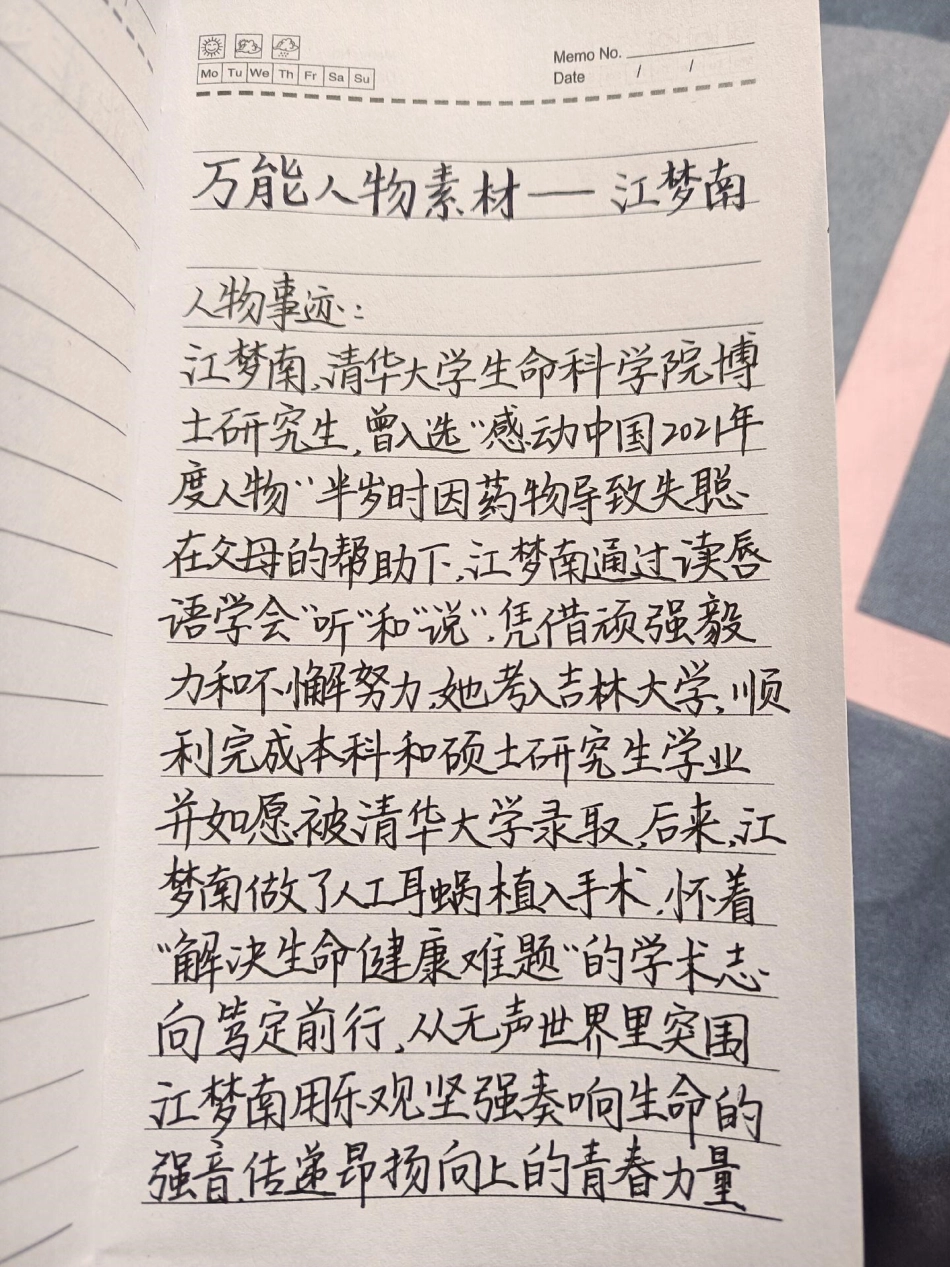 Mo Tu We Th Fr Sa Su
Memo No.
Date / /
万能人物素材——江梦南
人物事迹：
江梦南,清华大学生命科学院博
士研究生,曾入选"感动中国2021年
度人物"半岁时因药物导致失聪.
在父母的帮助下,江梦南通过读唇
语学会"听"和"说".凭借顽强毅
力和不懈努力,她考入吉林大学,顺
利完成本科和硕士研究生学业
并如愿被清华大学录取,后来,江
梦南做了人工耳蜗植入手术,怀着
"解决生命健康难题"的学术志
向笃定前行,从无声世界里突围
江梦南用乐观坚强奏响生命的
强音,传递昂扬向上的青春力量